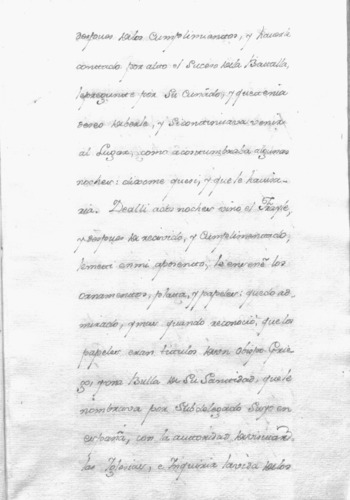 despues de los Cumplimientos, y haverle
contado por alto el Suceso de la Batalla,
le pregunte por Su Cuñado, y que tenia
deseo de berle, y Si continuava venir
al Lugar, como acostumbraba algunas
noches: dixome que si, y que le havisa-
ria. De alli a tres noches vino el Frayle,
y despues de recivido, y Cumplimentado,
le meti en mi aposento, le enseñè los
ornamentos, plata, y papeles: quedo ad-
mirado, y mas quando reconociò, que los
papeles eran titulos de un obispo Grie-
go, y una Bulla de Su Santidad, que le
nombrava por Subdelegado Suyo en
españa, con la autoridad de visitar
las Iglesias, e Inquirir la vida de los